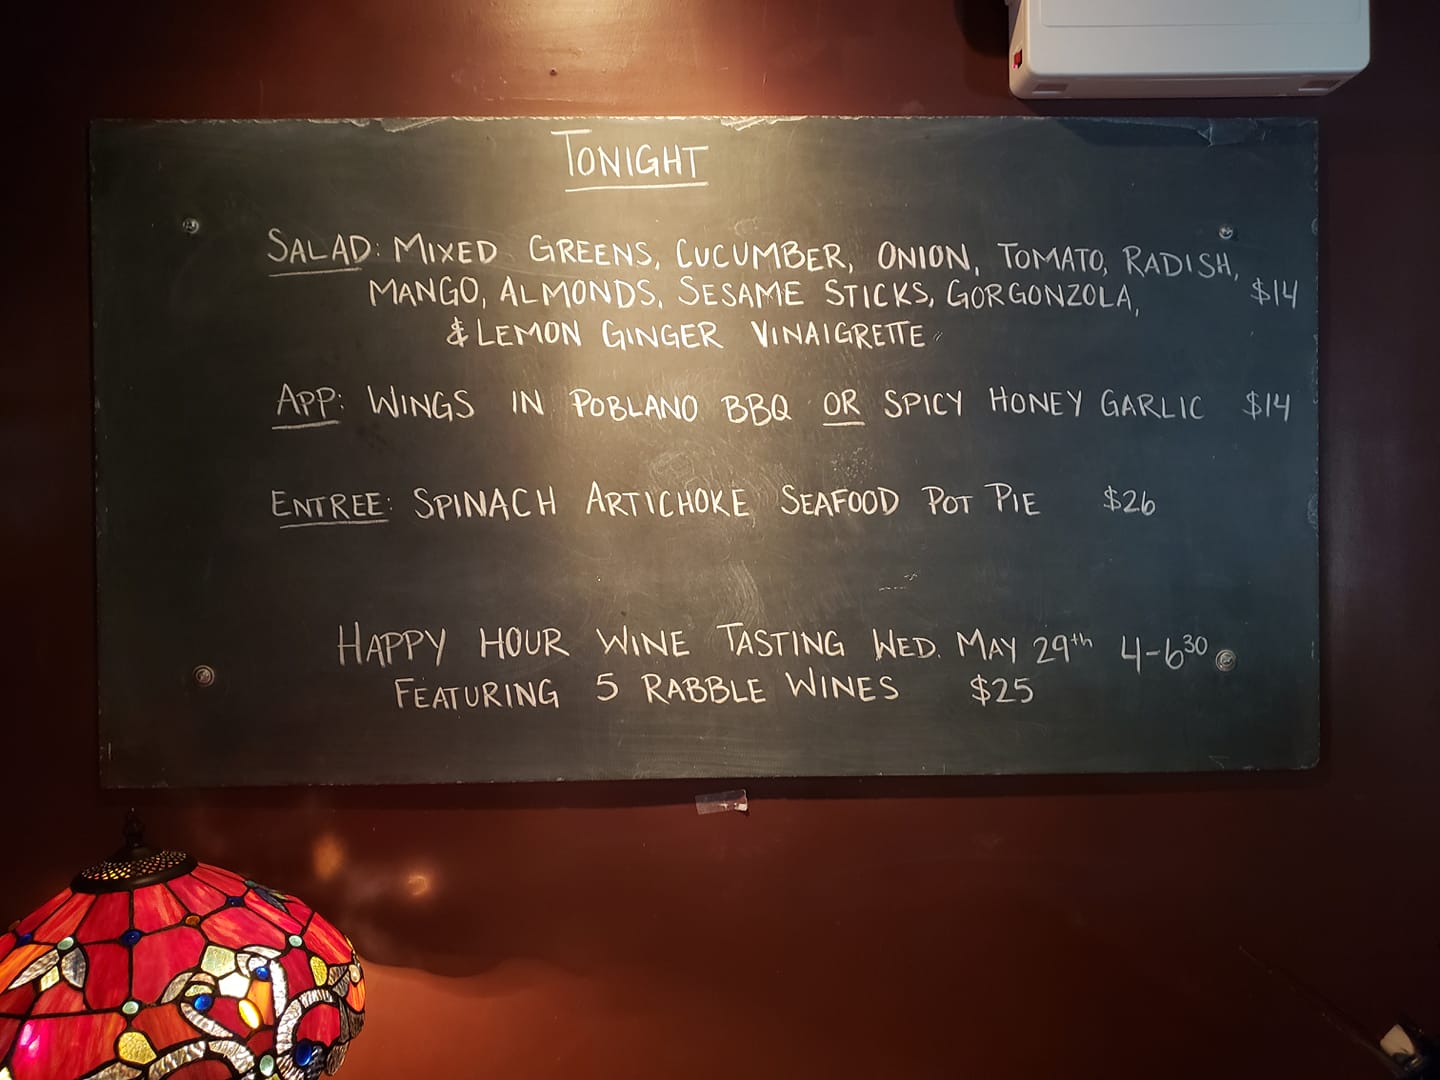 TONIGHT
SALAD: MIXED GREENS, CUCUMBER, ONION, TOMATO, RADISH,
MANGO, ALMONDS, SESAME STICKS, GORGONZOLA, $14
& LEMON GINGER VINAIGRETTE
APP: WINGS IN POBLANO BBQ OR SPICY HONEY GARLIC $14
ENTREE: SPINACH ARTICHOKE SEAFOOD POT PIE $26
HAPPY HOUR WINE TASTING WED. MAY 29th 4-630
FEATURING 5 RABBLE WINES $25